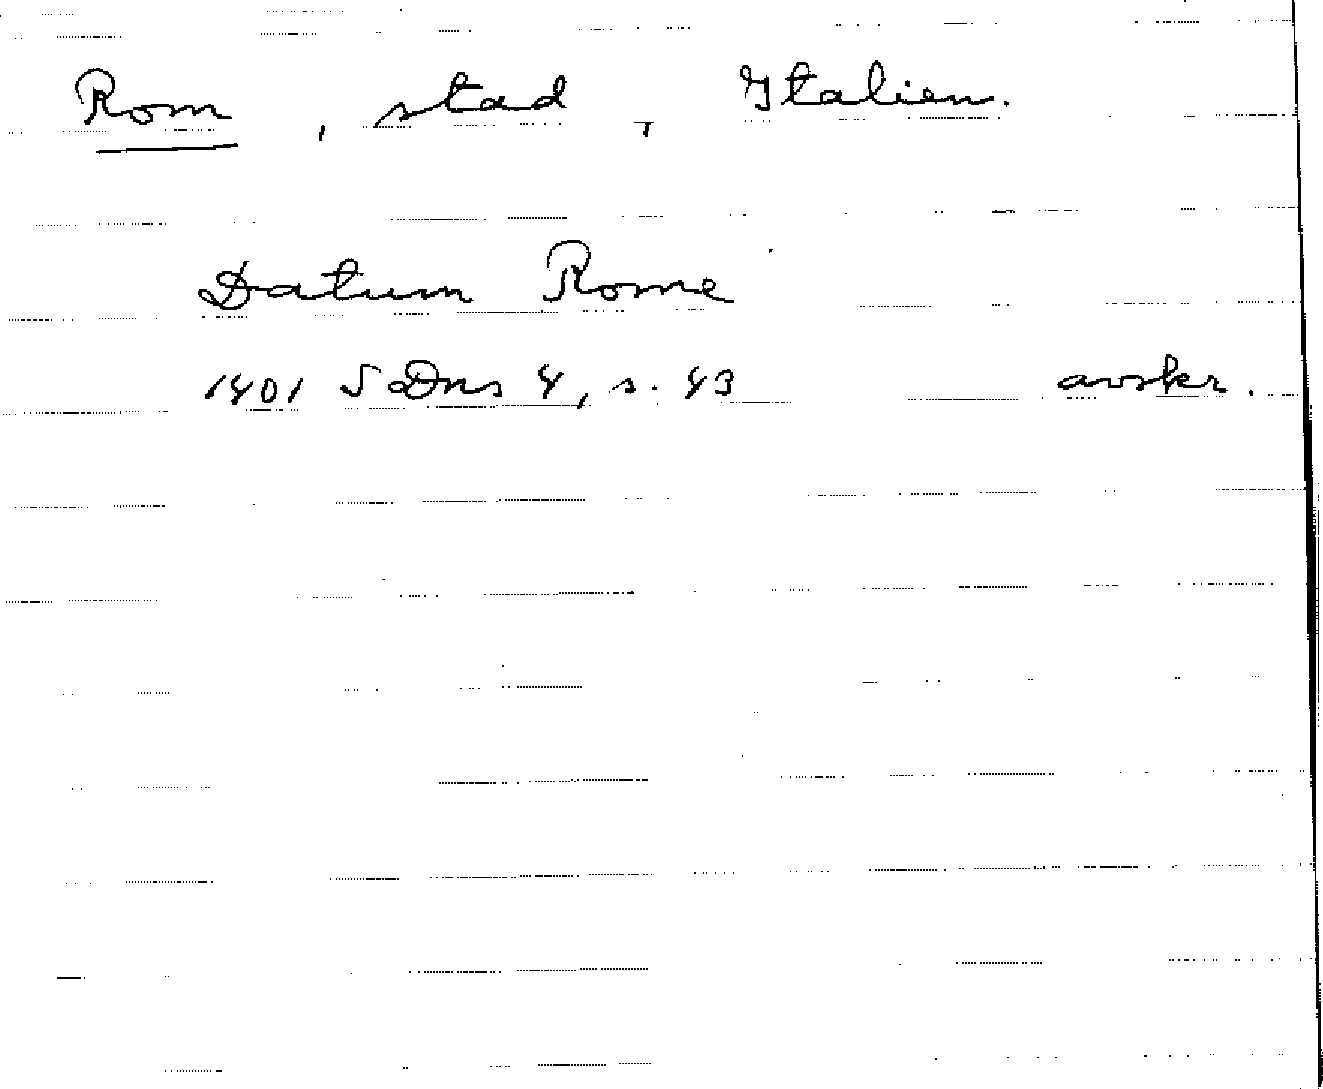 Rom, stad, Italien.
Datum Rome
1401 SDns 4, s. 43 avskr.